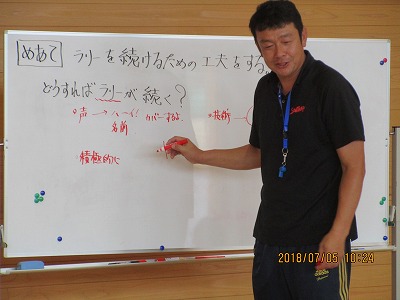 めあて ラリーを続けるための工夫をする。
どうすればラリーが続く？
声 → ハーイ! カバーする 技術
名前
積極的に
2018/07/05 10:24